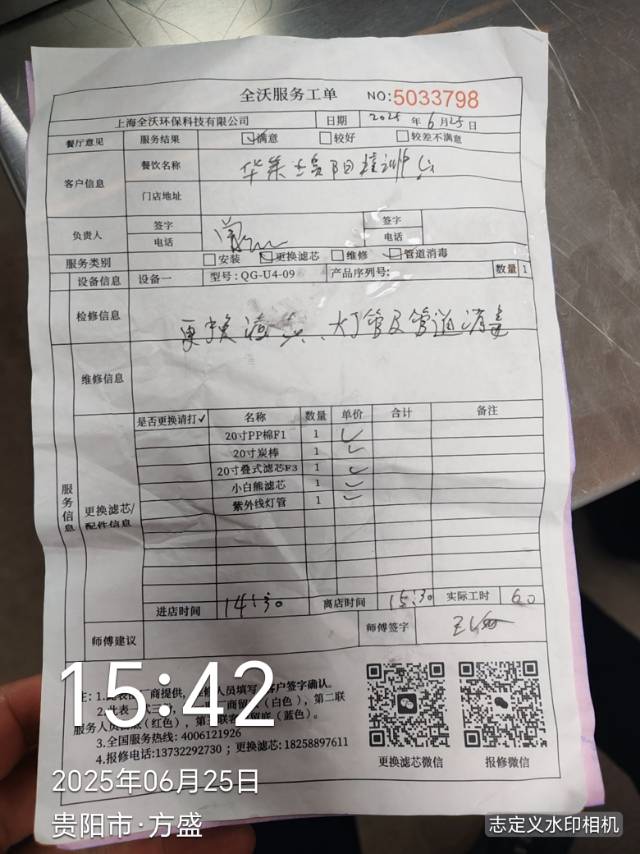 全沃服务工单 NO:5033798
上海全沃环保科技有限公司 日期 2025年6月25日
餐厅意见 服务结果 ☑满意 □较好 □较差不满意
客户信息 餐饮名称 华莱士贵阳培训
门店地址
负责人 签字 签字
电话 电话
服务类别 □安装 ☑更换滤芯 □维修 ☑管道消毒
设备信息 设备一 型号:QG-U4-09 产品序列号: 数量 1
检修信息 更换滤芯、灯管及管道消毒
维修信息
服务信息 更换滤芯/配件信息
是否更换请打✓ 名称 数量 单价 合计 备注
20寸PP棉F1 1 ✓
20寸炭棒 1 ✓
20寸叠式滤芯F3 1 ✓
小白熊滤芯 1 ✓
紫外线灯管 1 ✓
进店时间 14:30 离店时间 15:30 实际工时 60
师傅建议 师傅签字
注:1.此表 厂商提供, 人员填写 客户签字确认。
2.此表一 商留 (白色),第二联
服务人员 (红色),第三联客 留底(蓝色)。
3.全国服务热线: 4006121926
4.报修电话:13732292730;更换滤芯:18258897611
更换滤芯微信 报修微信
15:42
2025年06月25日
贵阳市·方盛
志定义水印相机